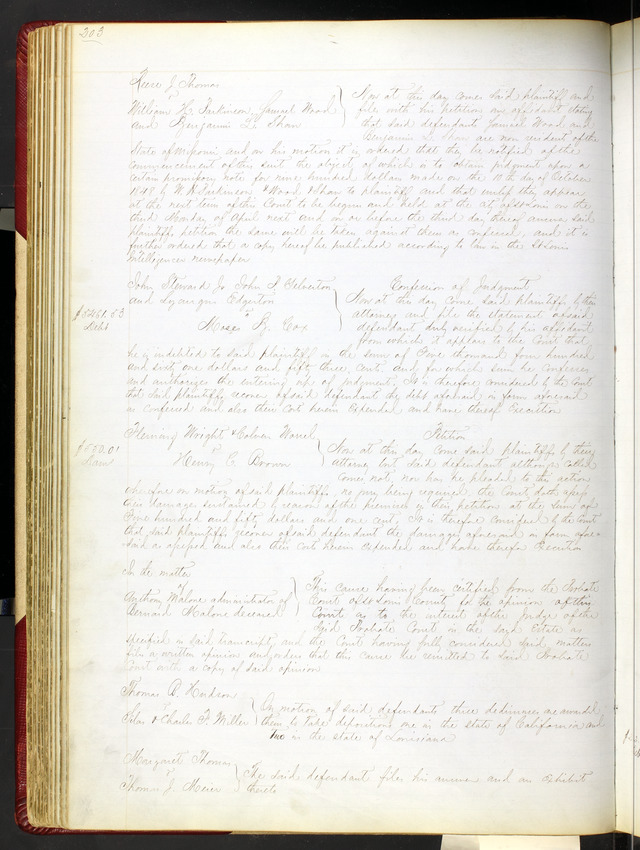 303
Reese J Thomas
v
William H. Parkinson, Samuel Wood
and Benjamin L. Shaw
Now at this day comes said plaintiff and
file with his petition an affidavit stating
that said defendant Samuel Wood and
Benjamin L. Shaw are non resident of the
State of Missouri and on his motion it is ordered that they be notified of the
commencement of this suit the object of which is to obtain judgment upon a
certain promissory note for nine hundred dollars made on the 18th day of October
1848 by W. H. Parkinson & Wood & Shaw to plaintiff and that unless they appear
at the next term of this Court to be begun and held at the of St Louis on the
third Monday of April next and on or before the third day thereof answer said
plaintiffs petition the same will be taken against them as confessed and it is
further ordered that a copy hereof be published according to law in the St Louis
Intelligencer newspaper
John Steward Jr John A.
and Lycurgus Edgerton
v
Moses R. Cox
$1461.53
Debt
Confession of Judgment
Now at this day come said plaintiffs by their
attorney and file the statement of said
defendant duly verified by his affidavit
from which it appears to the Court that
he is indebted to said plaintiffs in the sum of One thousand four hundred
and sixty one dollars and fifty three cents and for which sum he confesses
and authorizes the entering up of judgment. It is therefore considered by the Court
that said plaintiffs recover of said defendant the debt aforesaid in form aforesaid
as confessed and also their cost herein expended and have thereof Execution
Fleming Wright & Calvin
v
Henry C. Brown
$150.01
Dam
Petition
Now at this day come said plaintiffs by their
attorney but said defendant although called
comes not, nor has he pleaded to the action
wherefore on motion of said plaintiffs, no jury being required the Court doth assess
their damages sustained by reason of the premises in their petition at the sum of
One hundred and fifty dollars and one cent. It is therefore considered by the Court
that said plaintiffs recover of said defendant the damages aforesaid in form afore-
said as assessed and also their cost herein expended and have thereof Execution
In the matter
of
Anthony Malone administrator of
Bernard Malone deceased
This cause having been certified from the Probate
Court of St Louis County for the opinion of this
Court as to the interest of the judge of the
said Probate Court in the said Estate as
specified in said transcript, and the Court having fully considered said matters
file a written opinion and order that this cause be remitted to said Probate
Court with a copy of said opinion
Thomas A. Hardson
v
Silas & Charles F. Miller
On motion of said defendants three dedimuses are awarded
them to take depositions one in the state of California and
Two in the state of Louisiana
Margaret Thomas
v
Thomas J. Meier
The said defendant files his answer and an Exhibit
thereto